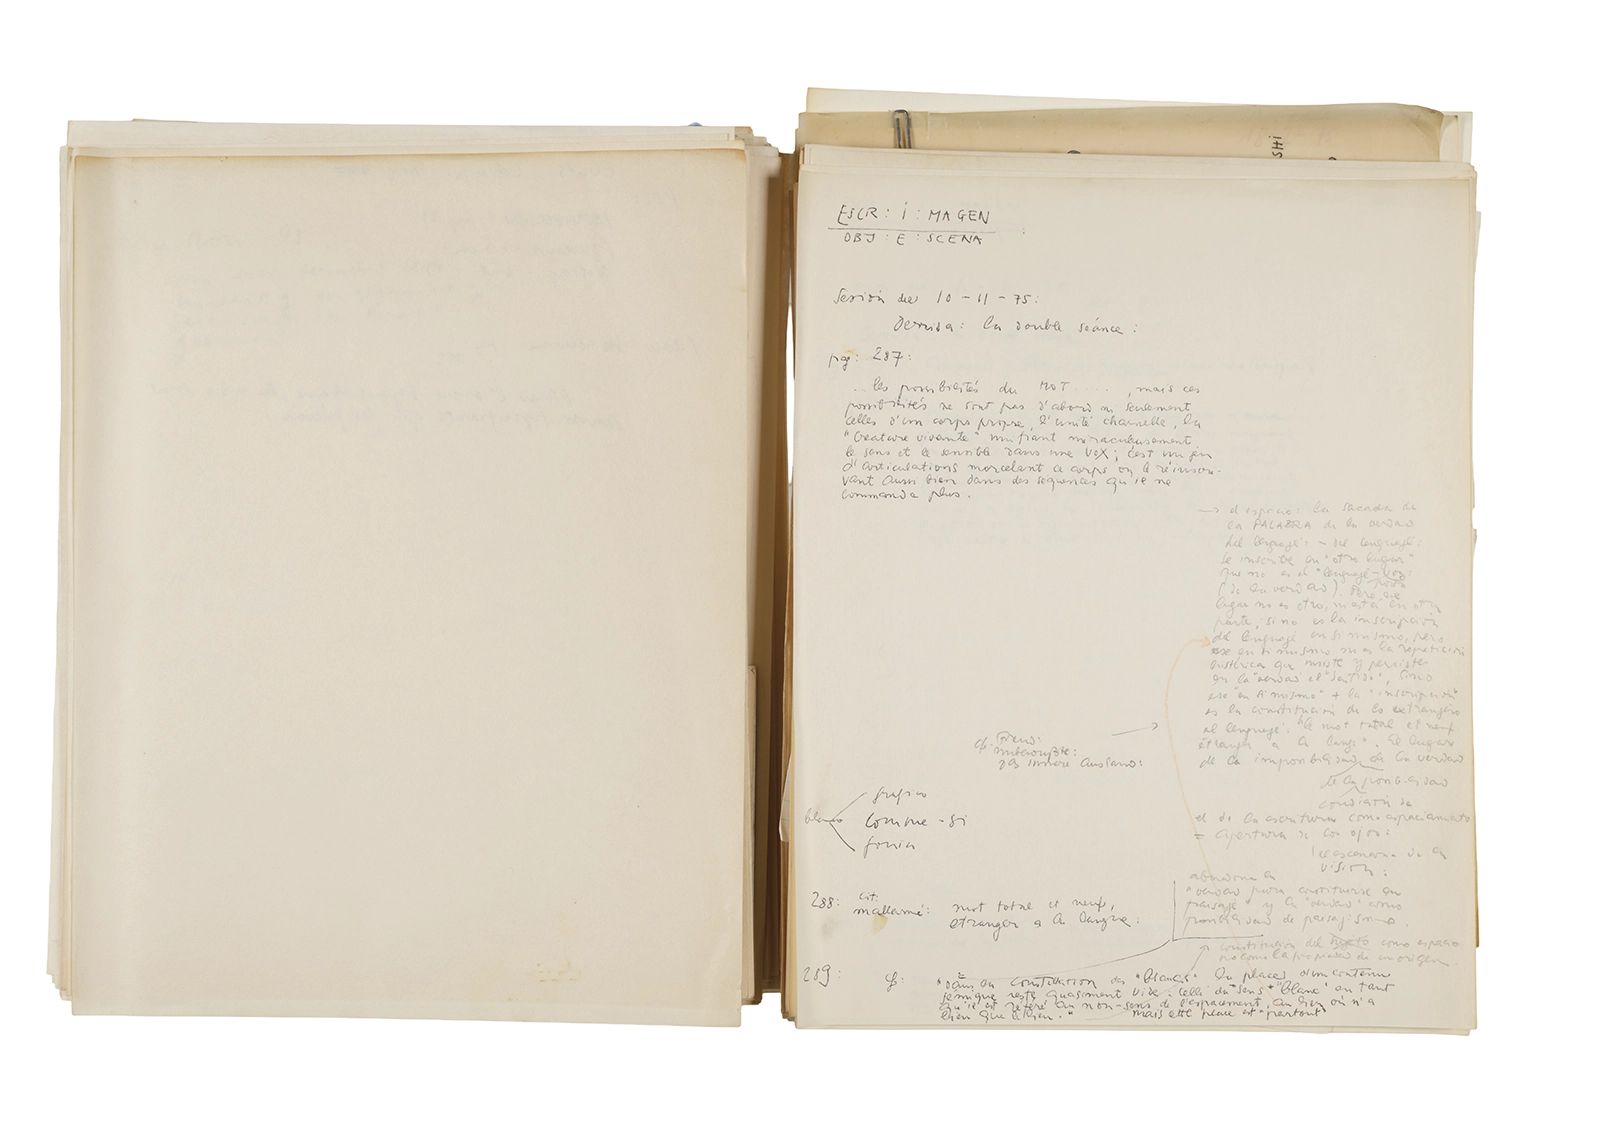 SHI
ESCR : i : MAGEN
OBJ : E : SCENA
Sesión del 10-11-75:
Derrida: La double séance:
pag: 287:
... les possibilités du MOT ...., mais ces
possibilités ne sont pas d'abord ni seulement
celles d'un corps propre, l'unité charnelle, la
"créature vivante" unifiant miraculeusement
le sens et le sensible dans une VOX; c'est un jeu
d'articulations morcelant ce corps ou le réinscri-
vant aussi bien dans des sequences qu'il ne
commande plus.
→ el espacio: la sacada de
la PALABRA de la verdad
del lenguaje: - del lenguaje:
se inscribe en "otro lugar"
que no es el "lenguaje-voz:
(de la verdad). Pero ese
lugar no es otro, ni está en otra
parte, si no es la inscripción
del lenguaje en si mismo, pero
ese en si mismo no es la repetición
histérica que insiste y persiste
en la "verdad el "sentido", sino
ese "en si mismo" + la "inscripción"
es la constitución de lo extranjero
al lenguaje: "le mot total et neuf
étranger a la langue". El lugar
de la imposibilidad de la verdad
de la posibilidad
condición de
el de la escritura como espaciamiento
= apertura de los ojos:
de la
visión:
cf. Freud:
das innere Ausland:
blanco
grafico
Comme-si
fonia
288: cit. mallarmé: mot total et neuf,
étranger a la langue:
"verdad para constituirse en
paisaje" y la "verdad" como
posibilidad de paisajismo.
constitución del sujeto como espacio
no como la propiedad de un origen.
289: cf: "dans la constitution des "blancs" la place d'un contenu
semique reste quasiment vide: celle du "sens" "blanc" en tant
qu'il est référé au non-sens de l'espacement, au lieu où n'a
lieu que le lieu." mais cette place est "partout"